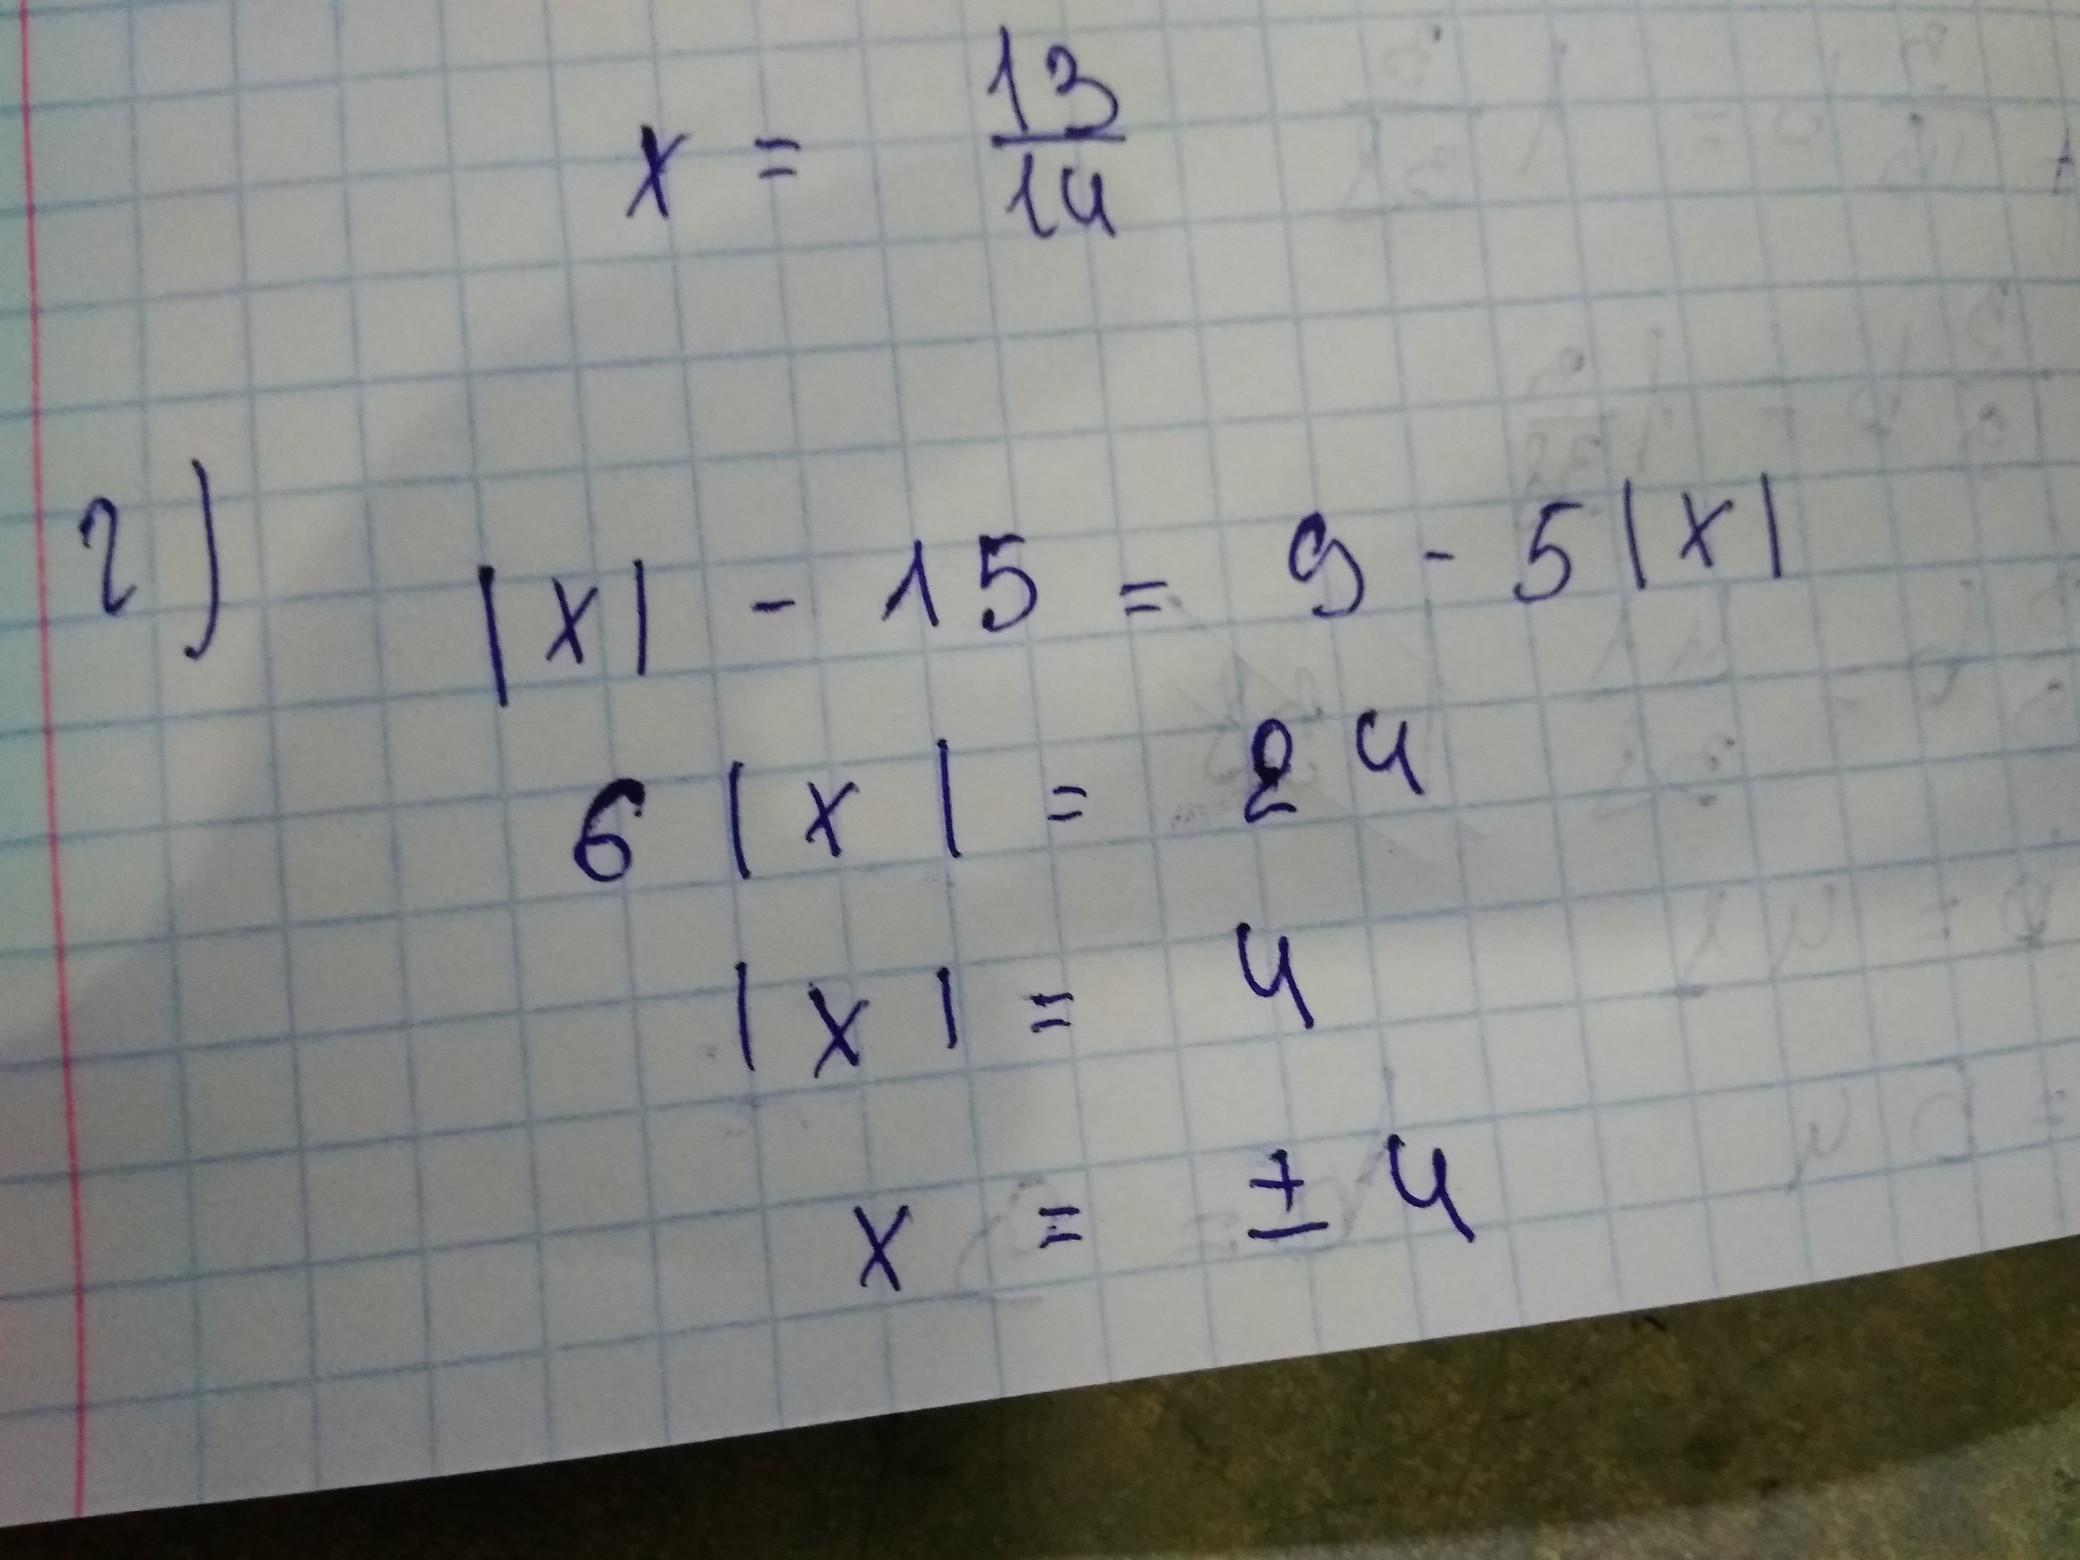 x = 13/14
г) |x| - 15 = 9 - 5|x|
6|x| = 24
|x| = 4
x = ± 4